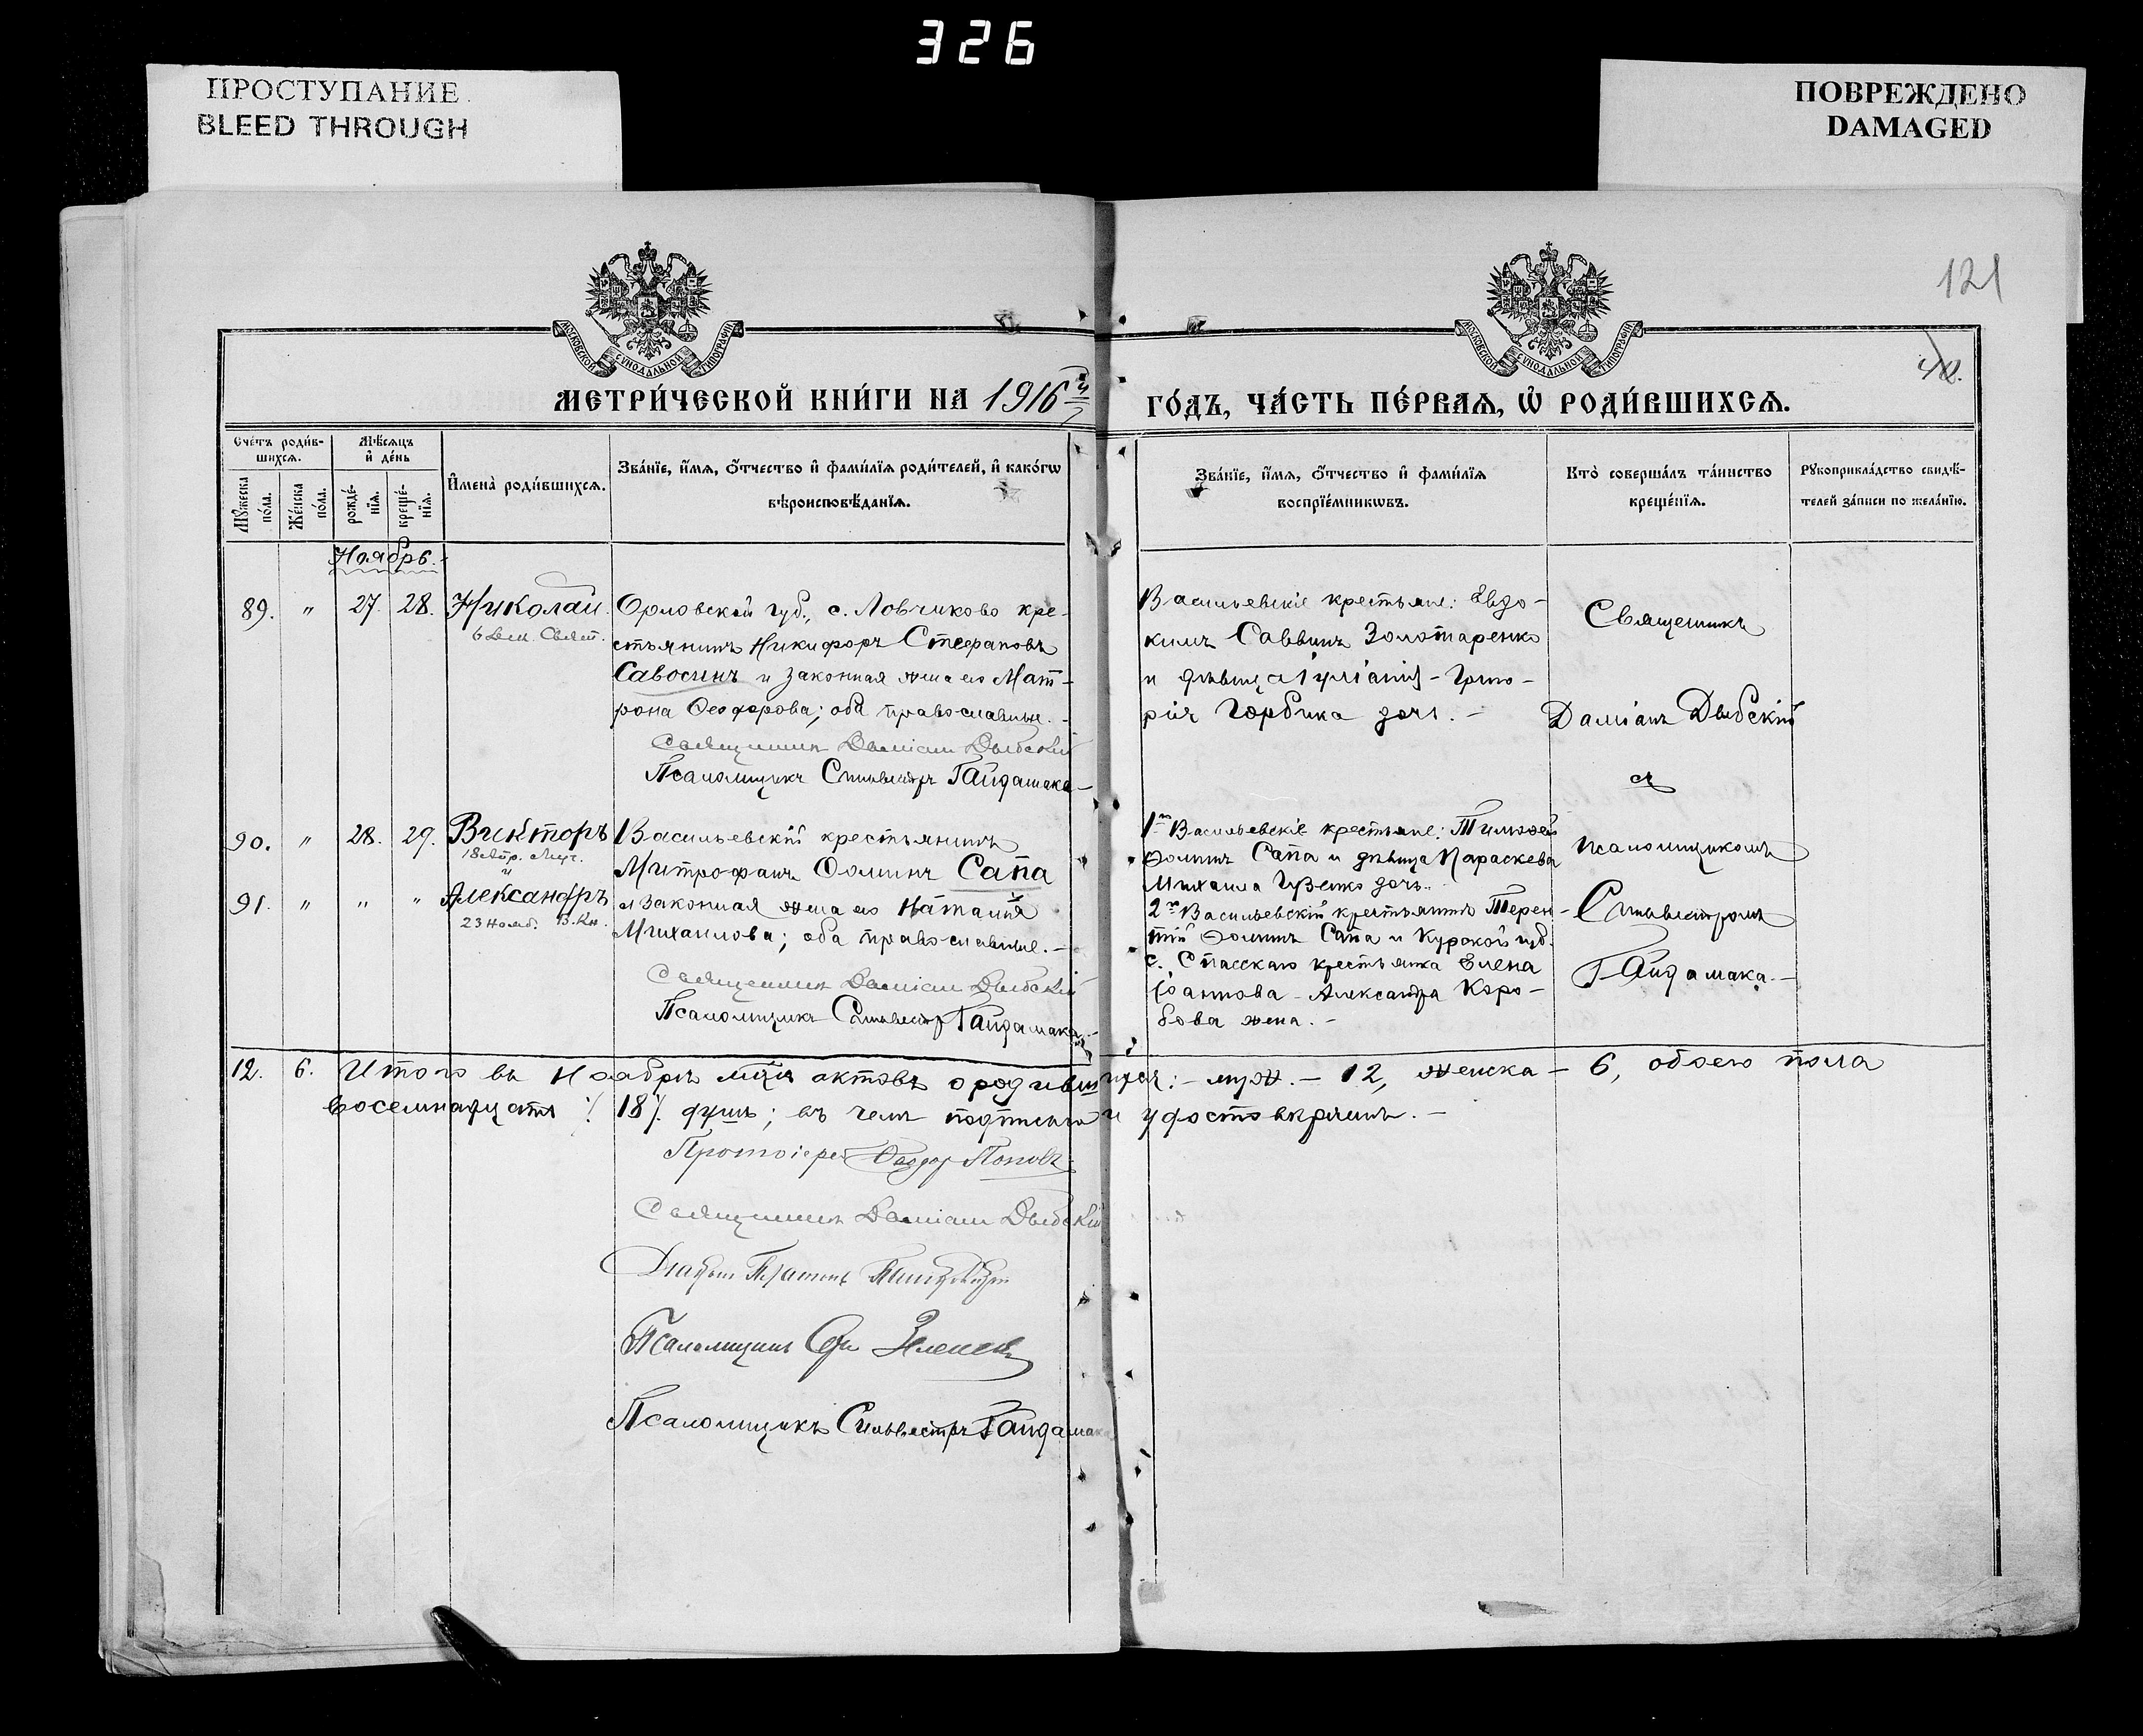 326
ПРОСТУПАНИЕ
BLEED THROUGH
ПОВРЕЖДЕНО
DAMAGED
121
МОСКОВСКОЙ СѴНОДАЛЬНОЙ ТИПОГРАФІИ
МОСКОВСКОЙ СѴНОДАЛЬНОЙ ТИПОГРАФІИ
МЕТРИ́ЧЕСКОЙ КНИ́ГИ НА 1916й
ГО́ДЪ, ЧА́СТЬ ПЕ́РВАѦ, Ѡ РОДИ́ВШИХСѦ.
Сче́тъ роди́в-
шихсѧ.
Мѣ́сѧцъ
и҆ де́нь
Мꙋжеска
по́ла.
Же́нска
по́ла.
рожде́-
нїѧ.
креще́-
нїѧ.
И҆мена̀ роди́вшихсѧ.
Зва́нїе, и҆́мѧ, ѻ҆́тчество и҆ фами́лїѧ роди́телей, и҆ како́гѡ
вѣроисповѣ́данїѧ.
Зва́нїе, и҆́мѧ, ѻ҆́тчество и҆ фами́лїѧ
воспрїе́мникѡвъ.
Кто̀ соверша́лъ та́инство
креще́нїѧ.
Рꙋкоприкла́дство свидѣ́-
телей за́писи по жела́нїю.
Ноябрь.
89. " 27. 28. Николай.
6 Дек. Свят.
Орловской губ., с. Ловчиково кре-
стьянинъ Никифоръ Стефановъ
Савосинъ и законная жена его Мат-
рона Ѳеодорова; оба православные.-
Священникъ Даміанъ Дыбскій
Псаломщикъ Сильвестръ Гайдамака-
Васильевскіе крестьяне: Евдо-
кимъ Саввинъ Золотаренко
и дѣвица Іуліанія - Григо-
рія Горбика дочь.-
Священникъ
Даміанъ Дыбскій
съ
90. " 28. 29. Викторъ
18 Апр. Муч.
и
91. " " " Александръ
23 Нояб. В. Кн.
Васильевскій крестьянинъ
Митрофанъ Ѳоминъ Сапа
и законная жена его Наталія
Михаилова; оба православные.-
Священникъ Даміанъ Дыбскій
Псаломщикъ Сильвестръ Гайдамака.-
1го Васильевскіе крестьяне: Тимоѳей
Ѳоминъ Сапа и дѣвица Параскева
Михаила Гузенко дочь.
2го Васильевскій крестьянинъ Терен-
тій Ѳоминъ Сапа и Курской губ.
с. Спасскаго крестьянка Елена
Іоаннова - Александра Коро-
бова жена.-
псаломщикомъ
Сильвестромъ
Гайдамака.-
12. 6. Итого въ Ноябрѣ мцѣ актовъ о родившихся:- муж.- 12, женска - 6, обоего пола
восемнадцать /18/ душъ; въ чемъ подписью и удостовѣряемъ.-
Протоіерей Ѳеодоръ Поповъ
Священникъ Даміанъ Дыбскій
Псаломщикъ
Псаломщикъ Сильвестръ Гайдамака